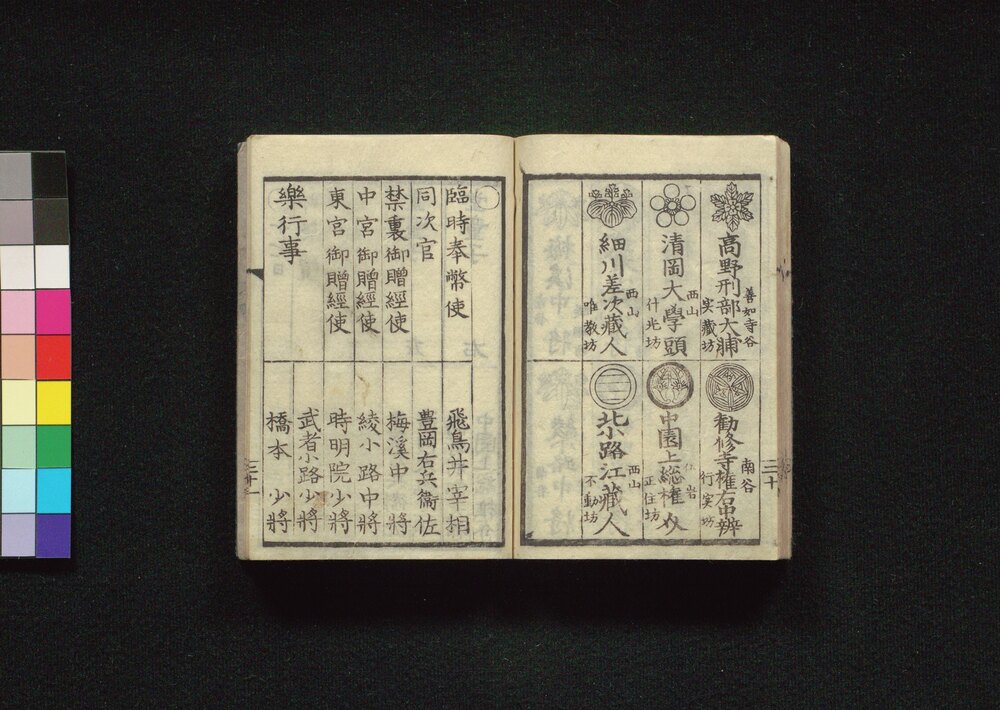 高野刑部大輔
善如寺谷
実藏坊
清岡大學頭
西山
什光坊
細川差次藏人
西山
唯教坊
勧修寺権右中辨
南谷
行実坊
中園上総権介
正住坊
北小路江藏人
西山
不動坊
三十
臨時奉幣使
飛鳥井宰相
同次官
豊岡右兵衞佐
禁裏御贈經使
梅溪中將
中宮御贈經使
綾小路中將
東宮御贈經使
時明院少將
武者小路少將
樂行事
橋本少將